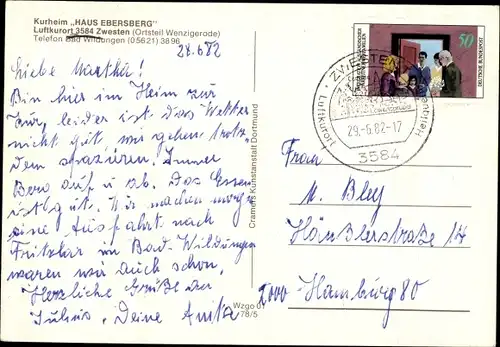 Kurheim „HAUS EBERSBERG"
Luftkurort 3584 Zwesten (Ortsteil Wenzigerode)
Telefon Bad Wildungen (05621) 3896
28.6.82
Liebe Martha!
Bin hier im Heim zur
Kur, leider ist das Wetter
nicht gut, wir gehen trotz
dem spazieren. Immer
Berg auf u. ab. Das Essen
ist gut. Wir machen morgen
eine Ausfahrt nach
Fritzlar in Bad Wildungen
waren wir auch schon,
Herzliche Grüße an
Julius. Deine Anita
Cramers Kunstanstalt Dortmund
Wzgo 6
78/5
50
DEUTSCHE BUNDESPOST
ZWESTEN
Luftkurort
29.-6.82-17
3584
Frau
M. Bley
Händlerstraße 14
2000 Hamburg 80